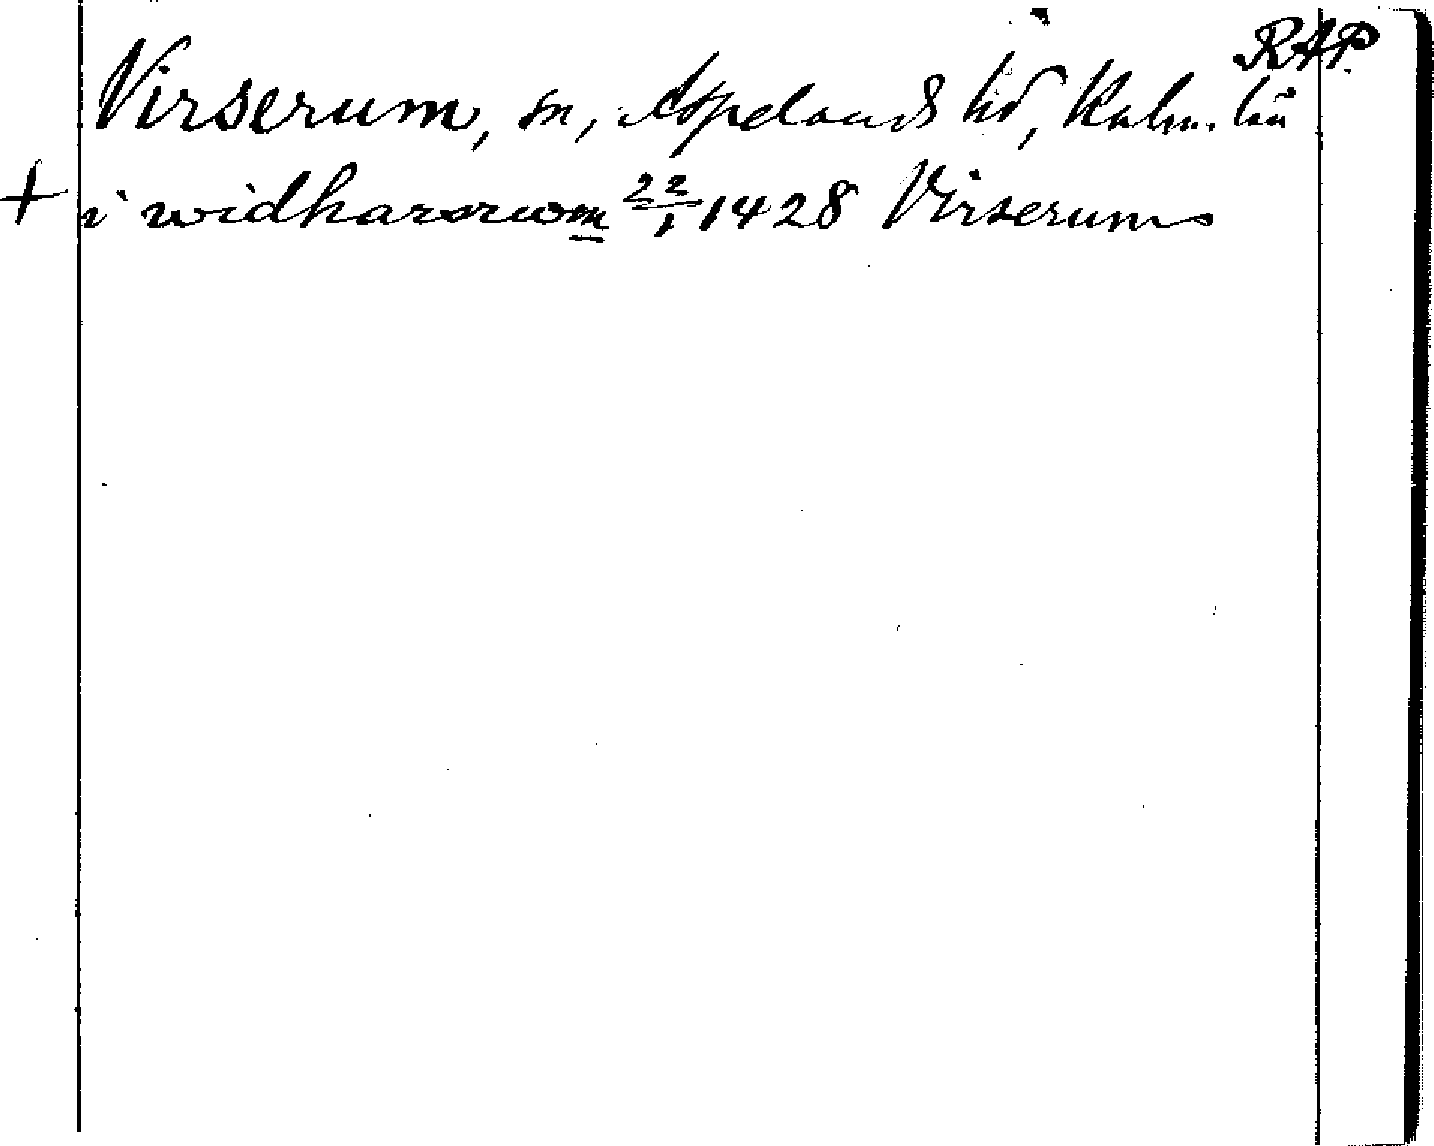 RAP.
Virserum, sn, Aspelands hd, Kalm. län
+ i widharsriom 22/1 1428 Virserum